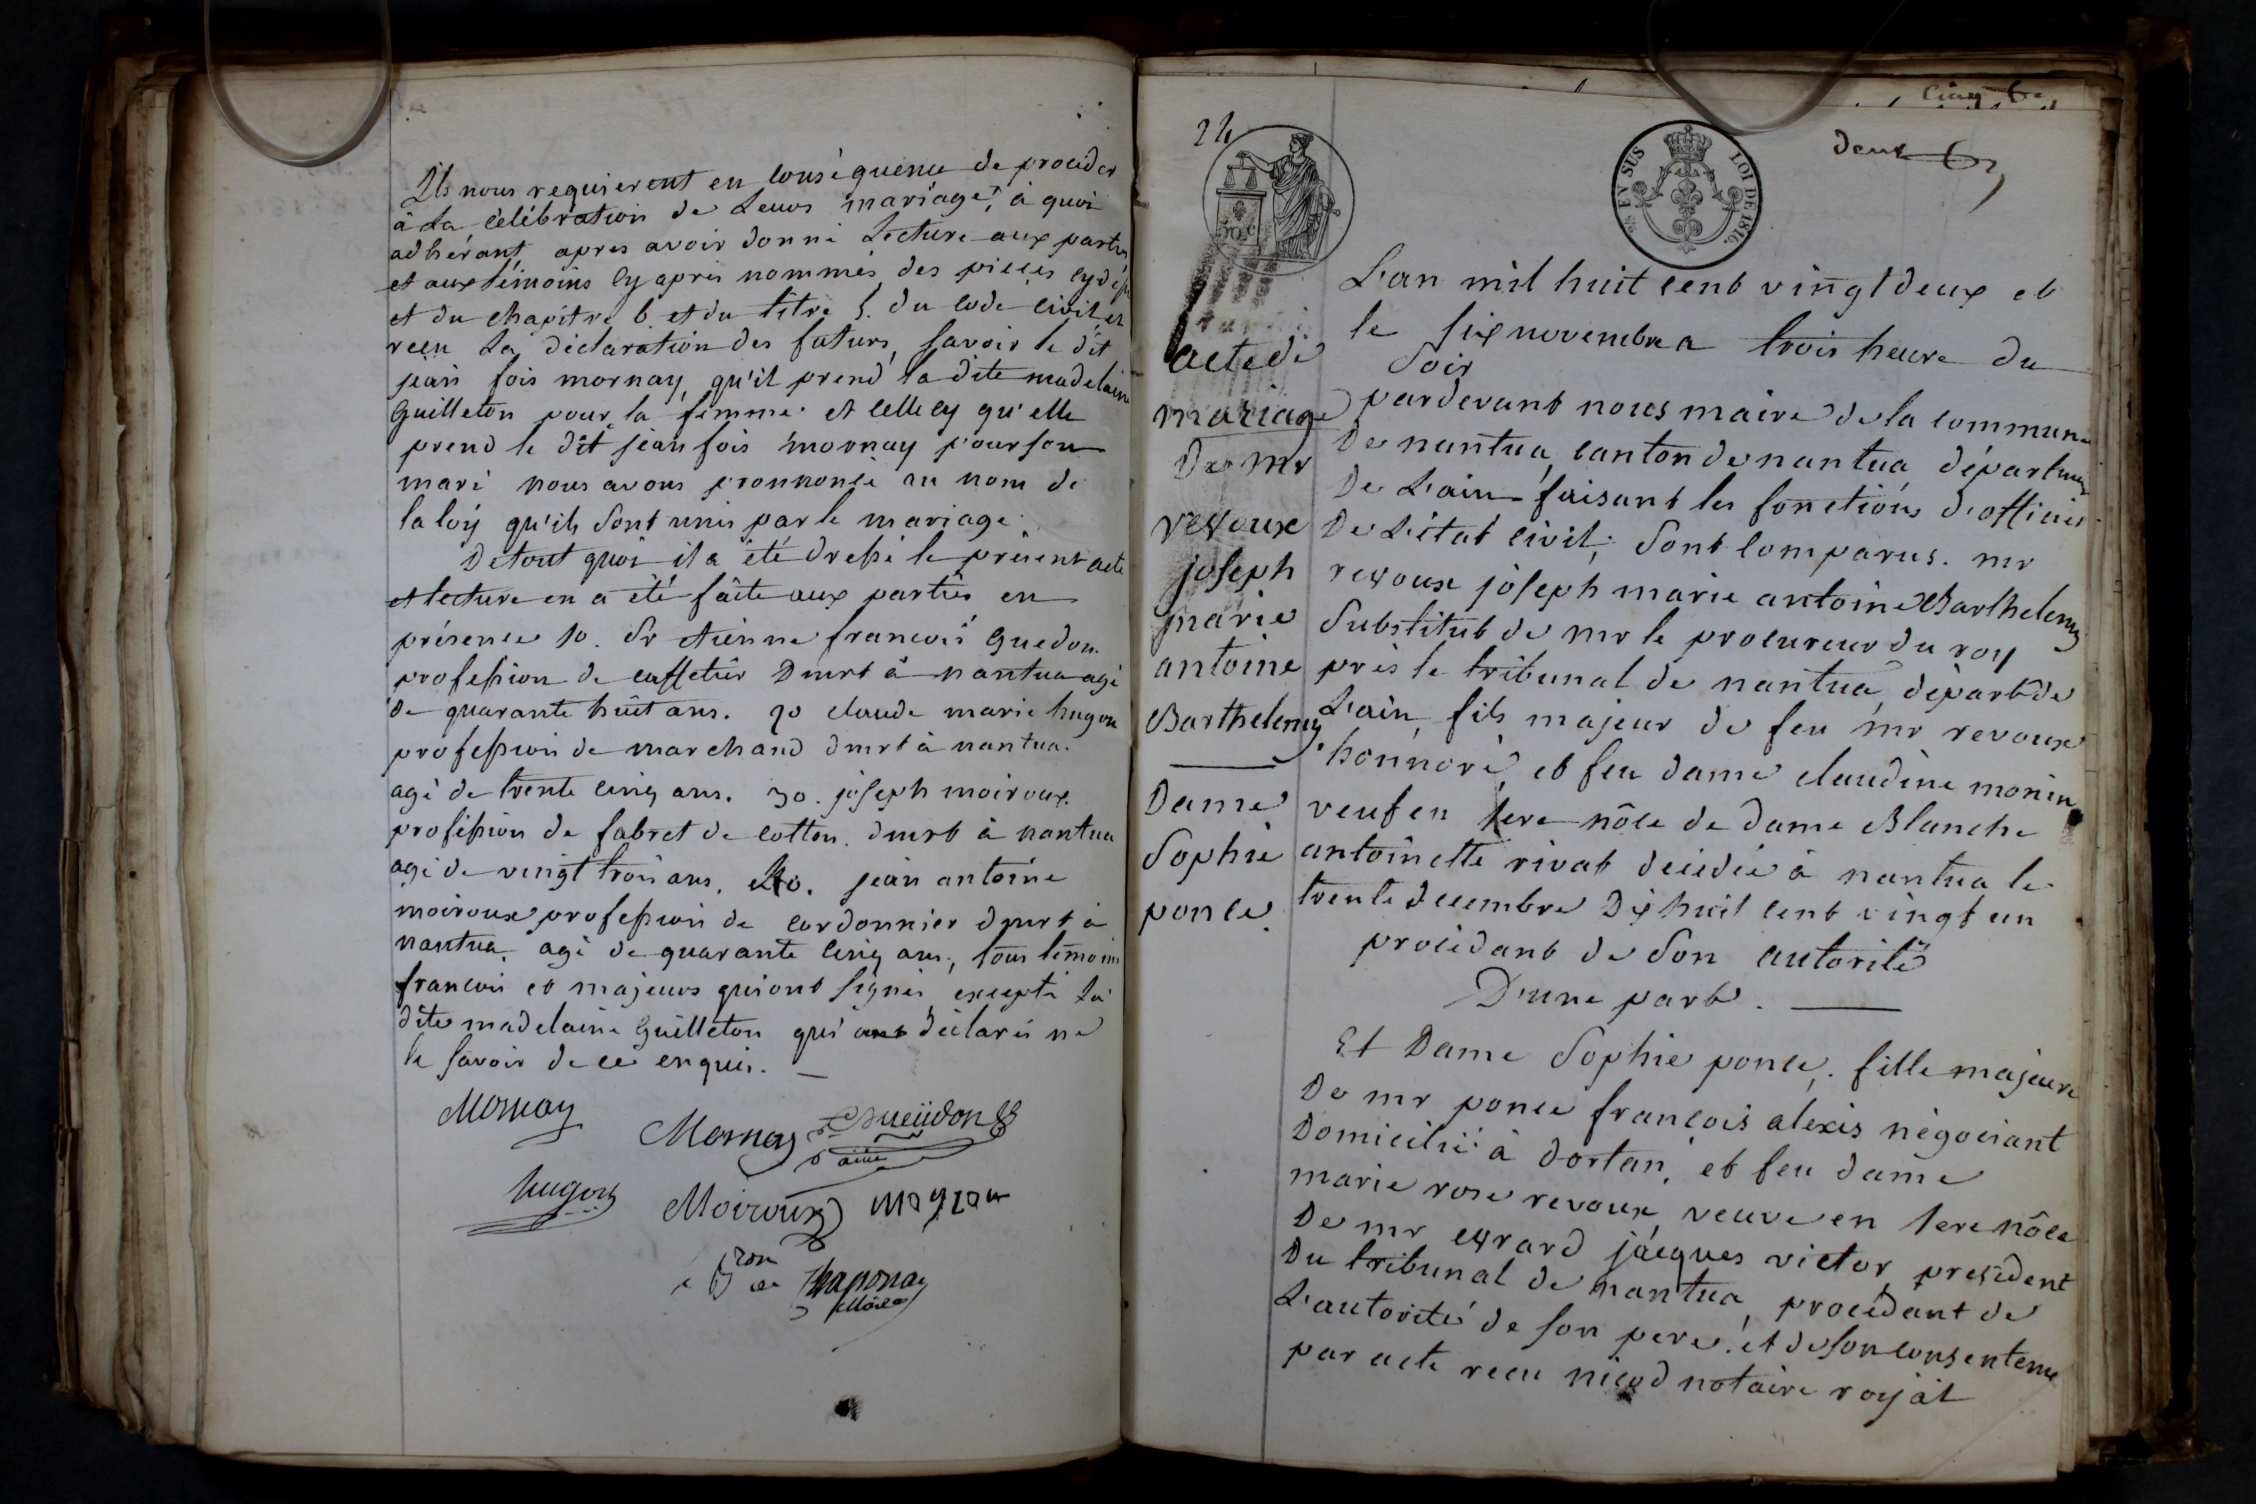 Ils nous requierent en conséquence de proceder
à la célébration de Leurs mariage, à quoi
adhérant, apres avoir donné Lecture aux parties
et aux témoins cy apres nommés, des pieces cy
et du chapitre 6 et du titre 5. du code civil et
reçu La déclaration des futurs, savoir le dit
jean fois mornay, qu'il prend la dite madelaine
Guilleton pour sa femme. et celle cy qu'elle
prend le dit jean fois mornay pour son
mari nous avons prononcé au nom de
la loy qu'ils sont unis par le mariage.
De tout quoi il a été dressé le présent acte
et lecture en a été faite aux parties en
présence 1o. Sr etienne francois Guedon
profession de caffetier Dmrt à nantua agé
de quarante huit ans. 2o claude marie hugon
profession de marchand dmrt à nantua.
agé de trente cinq ans. 3o. joseph moiroux.
profession de fabrct de cotton. dmrt à nantua
agé de vingt trois ans. 4o. jean antoine
moiroux profession de cordonnier dmrt à
nantua, agé de quarante cinq ans, tous témoins
francois et majeurs qui ont signés, excepté la
dite madelaine Guilleton qui ont déclarés ne
le savoir de ce enquis.
Mornay
Mornay Gueüdon
ainé
hugon Moiroux
Bon de
Maire
24
cinq
deux
EN SUS LOI DE 1816.
L'an mil huit cent vingt deux et
le six novembre a trois heure du
Soir
acte de
mariage
De mr
revoux
joseph
marie
antoine
Barthelemy
Dame
Sophie
ponce.
pardevant nous maire de la commune
De nantua, canton de nantua, département
De L'ain faisant les fonctions d'officier
De L'état civil; Sont comparus. mr
revoux joseph marie antoine Barthelemy
Substitut de mr le procureur du roy
près le tribunal de nantua, départt de
L'ain, fils majeur de feu mr revoux
honnoré, et feu dame claudine monin
veuf en 1ere nôce de dame Blanche
antoinette rivat décédée à nantua le
trente decembre Dix huit cent vingt un
procédant de Son autorité
D'une part.
Et Dame Sophie ponce, fille majeure
De mr ponce françois alexis négociant
Domicilié à dortan, et feu dame
marie rose revoux, veuve en 1ere nôce
De mr evrard jacques victor, president
Du tribunal de nantua, procédant de
L'autorité de son pere, et de son consenteme
par acte recu nicod notaire royal